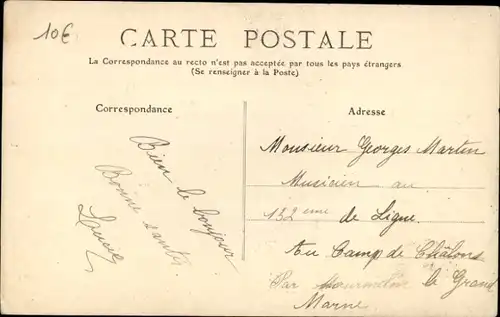 10€
CARTE POSTALE
La Correspondance au recto n'est pas acceptée par tous les pays étrangers
(Se renseigner à la Poste)
Correspondance
Adresse
Bien le bonjour
Bonne santé
Louise
Monsieur Georges Martin
Musicien au
132eme de Ligne
Au Camp de Châlons
Par Mourmelon le Grand
Marne